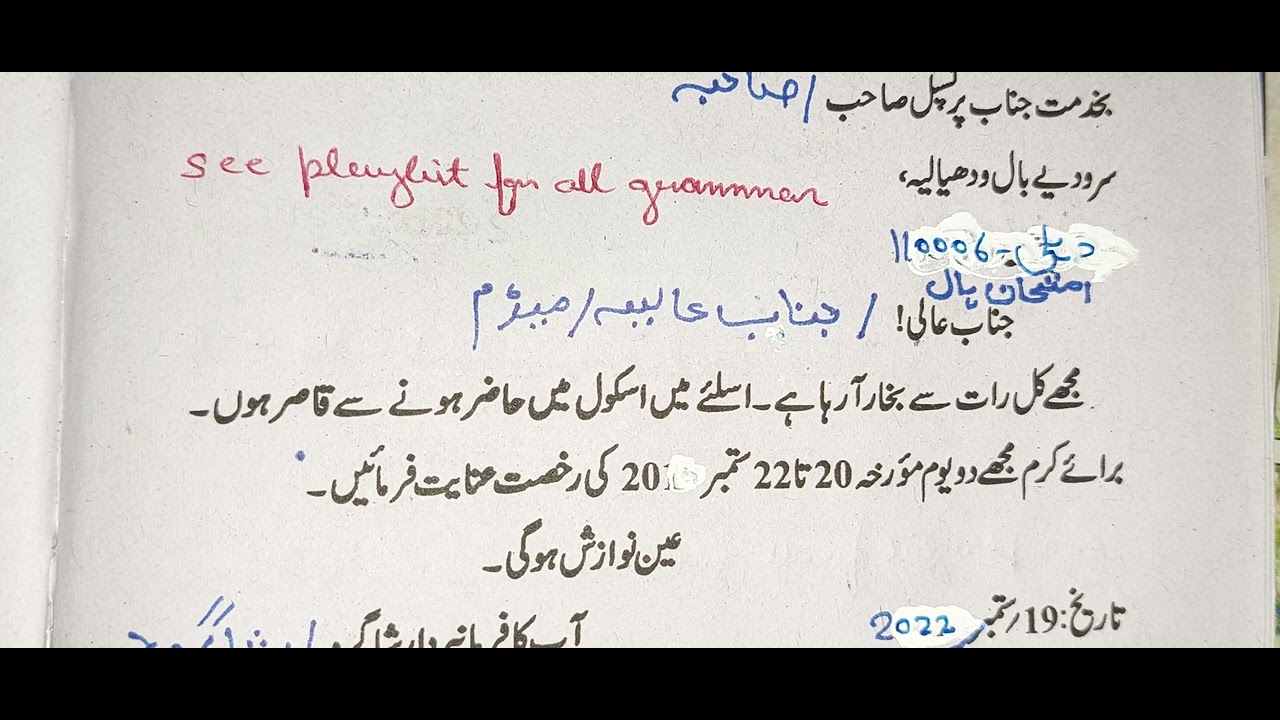 بخدمت جناب پرنسپل صاحب / صاحبہ
see playlist for all grammar
سرودیے بال ودھیالیہ،
دہلی-110006
امتحان ہال
جناب عالی! / جناب عالیہ / میڈم
مجھے کل رات سے بخار آرہا ہے۔ اسلئے میں اسکول میں حاضر ہونے سے قاصر ہوں۔
برائے کرم مجھے دو یوم مؤرخہ 20 تا 22 ستمبر 201 کی رخصت عنایت فرمائیں۔
عین نوازش ہوگی۔
تاریخ: 19/ستمبر 2022
آپ کا فرمانبردار شاگرد /